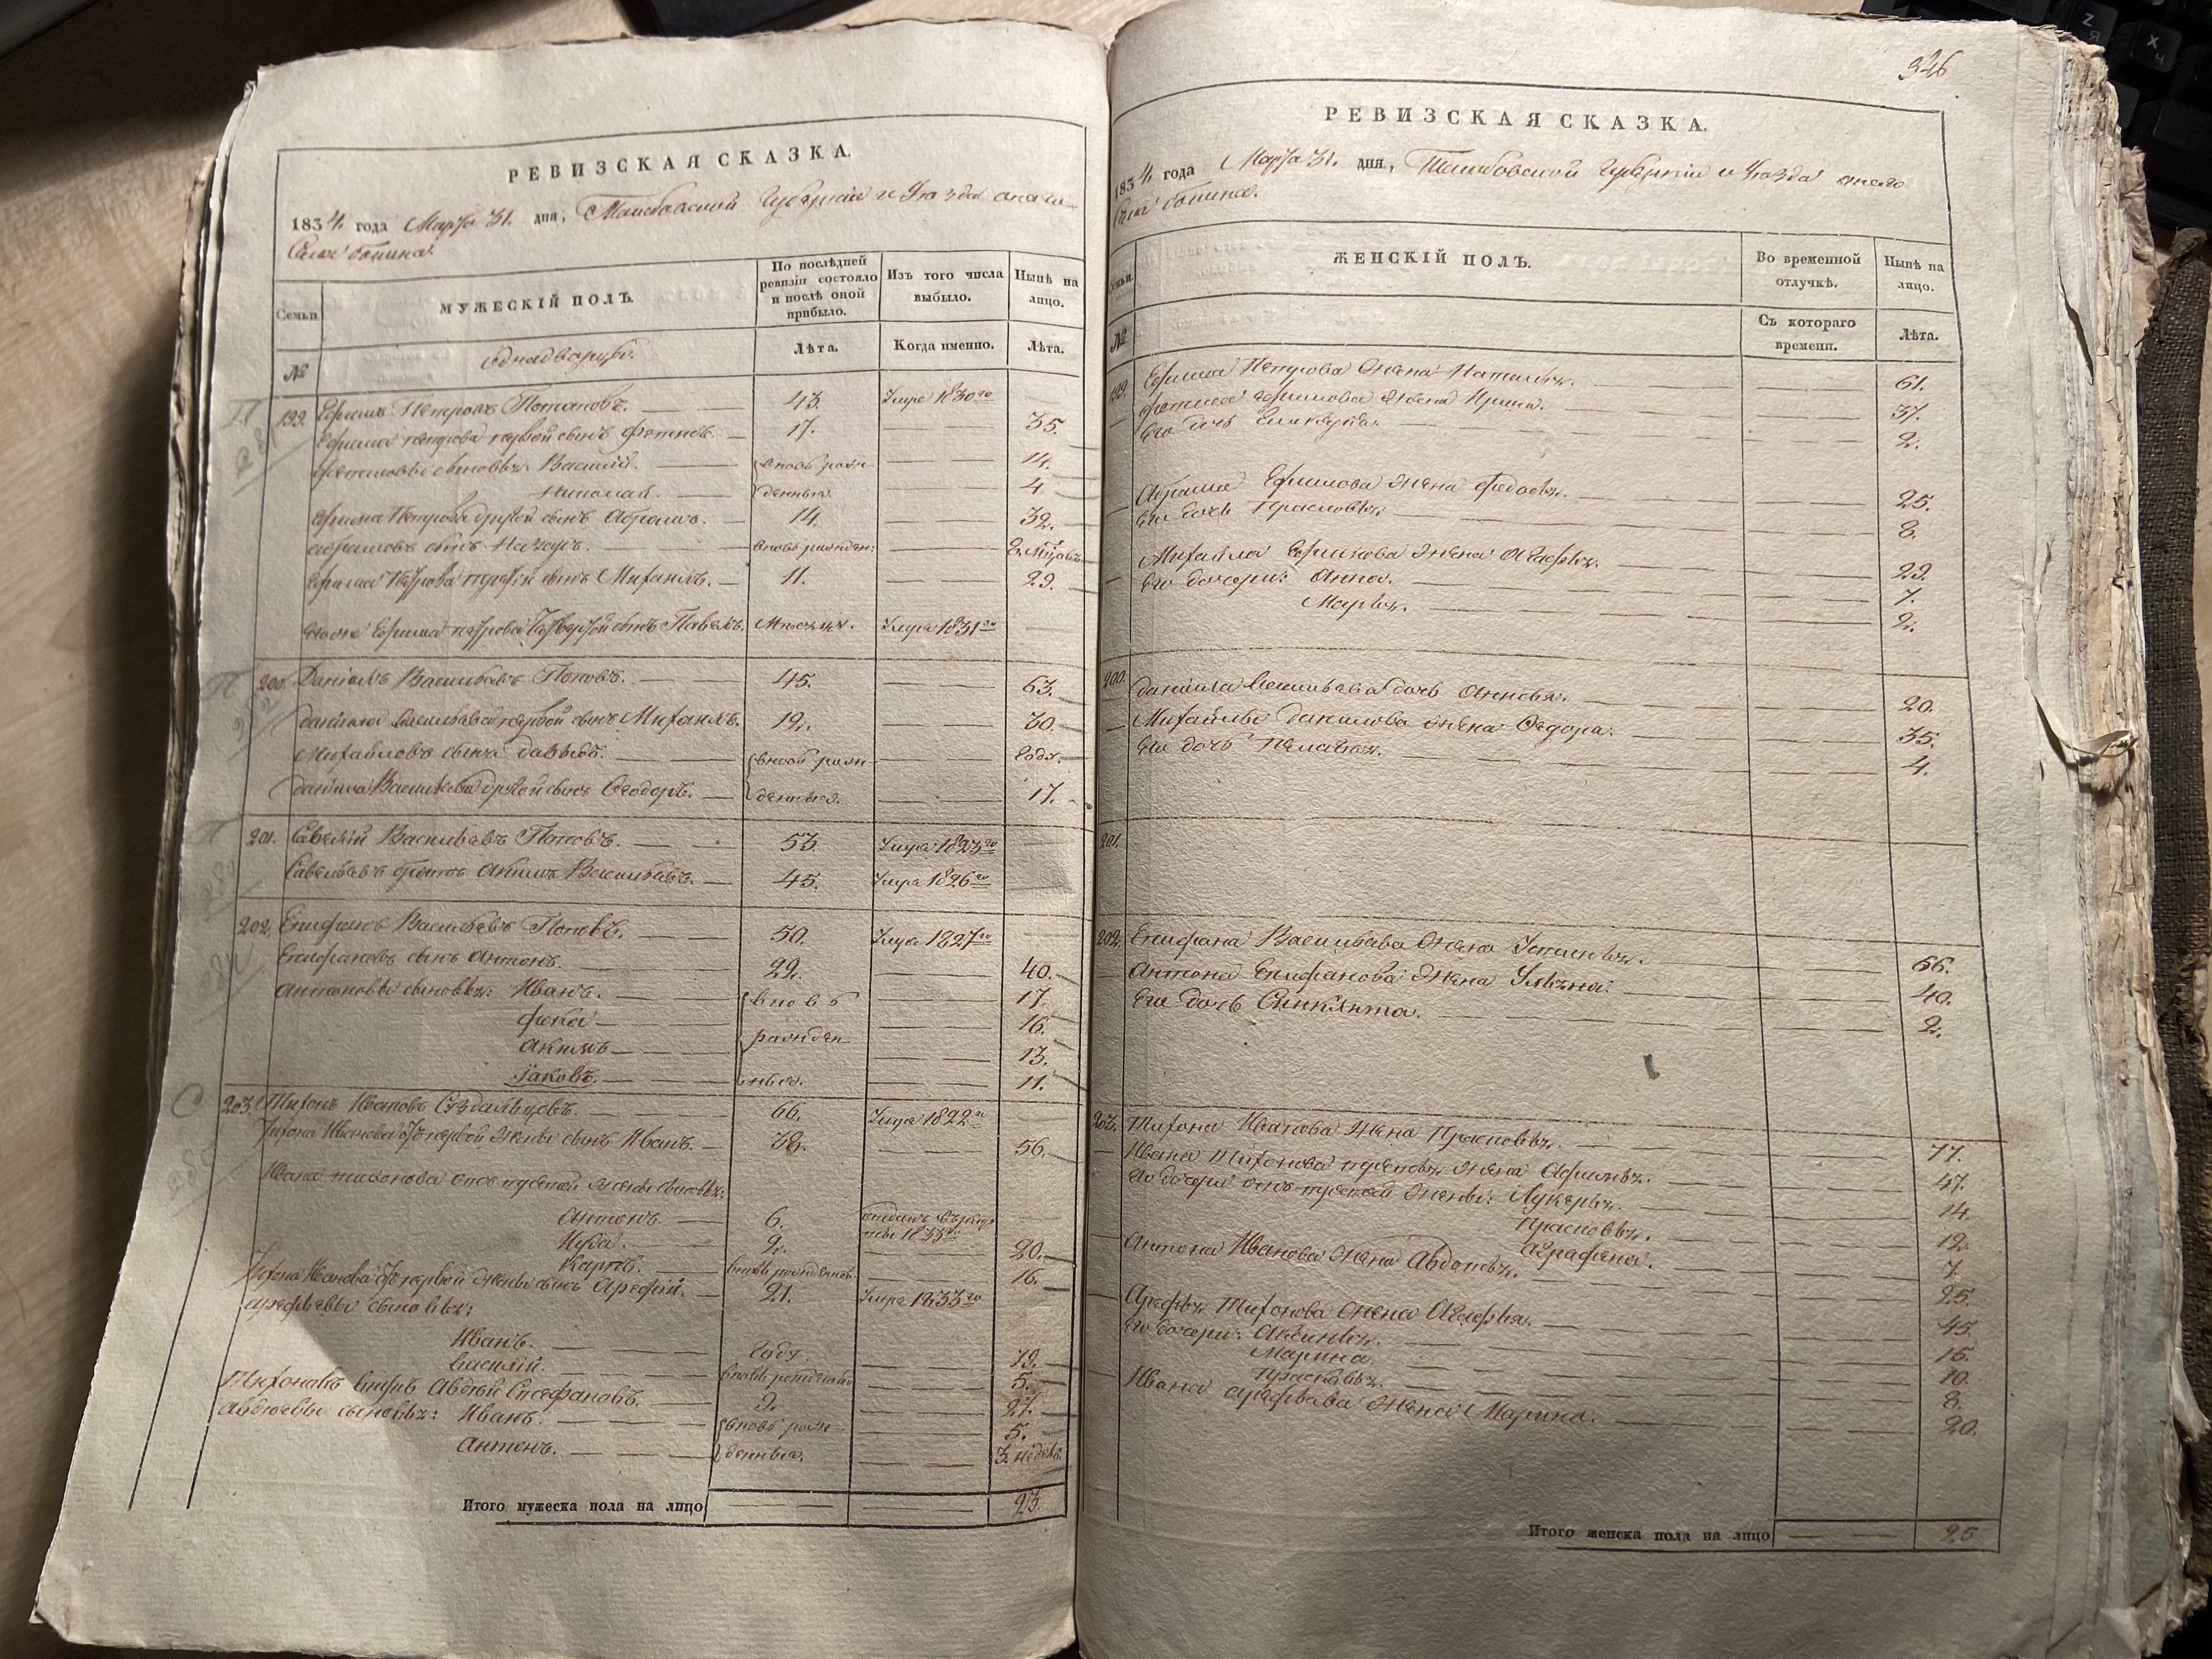 РЕВИЗСКАЯ СКАЗКА.
1834 года Марта 31. дня, Тамбовской Губерніи и Уезда
Села
Семьи.
МУЖЕСКІЙ ПОЛЪ.
По послѣдней ревизіи состояло и послѣ оной прибыло.
Изъ того числа выбыло.
Нынѣ на лицо.
№
Лѣта.
Когда именно.
Лѣта.
199. Ефимъ Петровъ Потаповъ. 43. Умре 1830го
Ефима Петрова первой сынъ 17. 35.
сыновья: Василій. вновь рож- 14.
Николай. денныя. 4.
Ефима Петрова другой сынъ Абрамъ. 14. 32.
Абрамовъ сынъ вновь рожден:
Ефима Петрова третій сынъ Михаилъ. 11. 29.
Ефима Петрова четвертой сынъ Павелъ. Умре 1831го
200. Даніилъ Васильевъ Поповъ. 45. 63.
Даніила Васильева первой сынъ Михаилъ. 12. 30.
Михайловъ сынъ Давыдъ. вновь рож- годъ.
Даніила Васильева другой сынъ Ѳеодоръ. денныя. 17.
201. Савелій Васильевъ Поповъ. 53. Умре 1823го
Савельевъ братъ Акимъ Васильевъ. 45. Умре 1826го
202. Епифанъ Васильевъ Поповъ. 50. Умре 1827го
Епифановъ сынъ Антонъ. 22. 40.
Антоновы сыновья: Иванъ. вновь 17.
Фока 16.
Акимъ рожден- 13.
Іаковъ. ныя. 11.
203. Тихонъ Ивановъ Суздальцовъ. 66. Умре 1822го
Тихона Иванова отъ первой жены сынъ Иванъ. 38. 56.
Ивана Тихонова отъ жены сыновья:
Антонъ. 6. отданъ въ рекруты
Лука. 2. 20.
Карпъ. вновь рожденъ. 16.
Тихона Иванова отъ первой жены сынъ Арефій. 21. Умре 1833го
Арефьевы сыновья:
Иванъ. году. 19.
Василій. 5.
Тихоновъ внукъ Авдей Стефановъ. 9. 27.
Авдеевы сыновья: Иванъ. вновь рож- 5.
Антонъ. денныя. 3. недель
Итого мужеска пола на лицо 23.
346
РЕВИЗСКАЯ СКАЗКА.
1834 года Марта 31. дня, Тамбовской Губерніи и Уезда
Села
Семьи.
ЖЕНСКІЙ ПОЛЪ.
Во временной отлучкѣ.
Нынѣ на лицо.
№
Съ котораго времени.
Лѣта.
199. Ефима Петрова жена Наталья. 61.
Ефимова жена Ирина. 37.
Его дочь 2.
Абрама Ефимова жена Федосья. 25.
Его дочь Прасковья. 8.
Михайла Ефимова жена Агафья. 29.
Его дочери: Анна. 7.
Марья. 2.
200. Даніила Васильева дочь 20.
Михайлы Данилова жена Ѳедора. 35.
Его дочь Пелагея. 4.
201.
202. Епифана Васильева жена Устинья. 66.
Антона Епифанова жена Ульяна. 40.
Его дочь 2.
203. Тихона Иванова жена Прасковья. 77.
Ивана Тихонова жена Афимья. 47.
Его дочери отъ жены: Лукерья. 14.
Прасковья. 12.
Аграфена. 7.
Антона Иванова жена Авдотья. 25.
Арефья Тихонова жена Агафья. 45.
Его дочери: 15.
Марина. 10.
Прасковья. 8.
Ивана Арефьева жена Марина. 20.
Итого женска пола на лицо 25